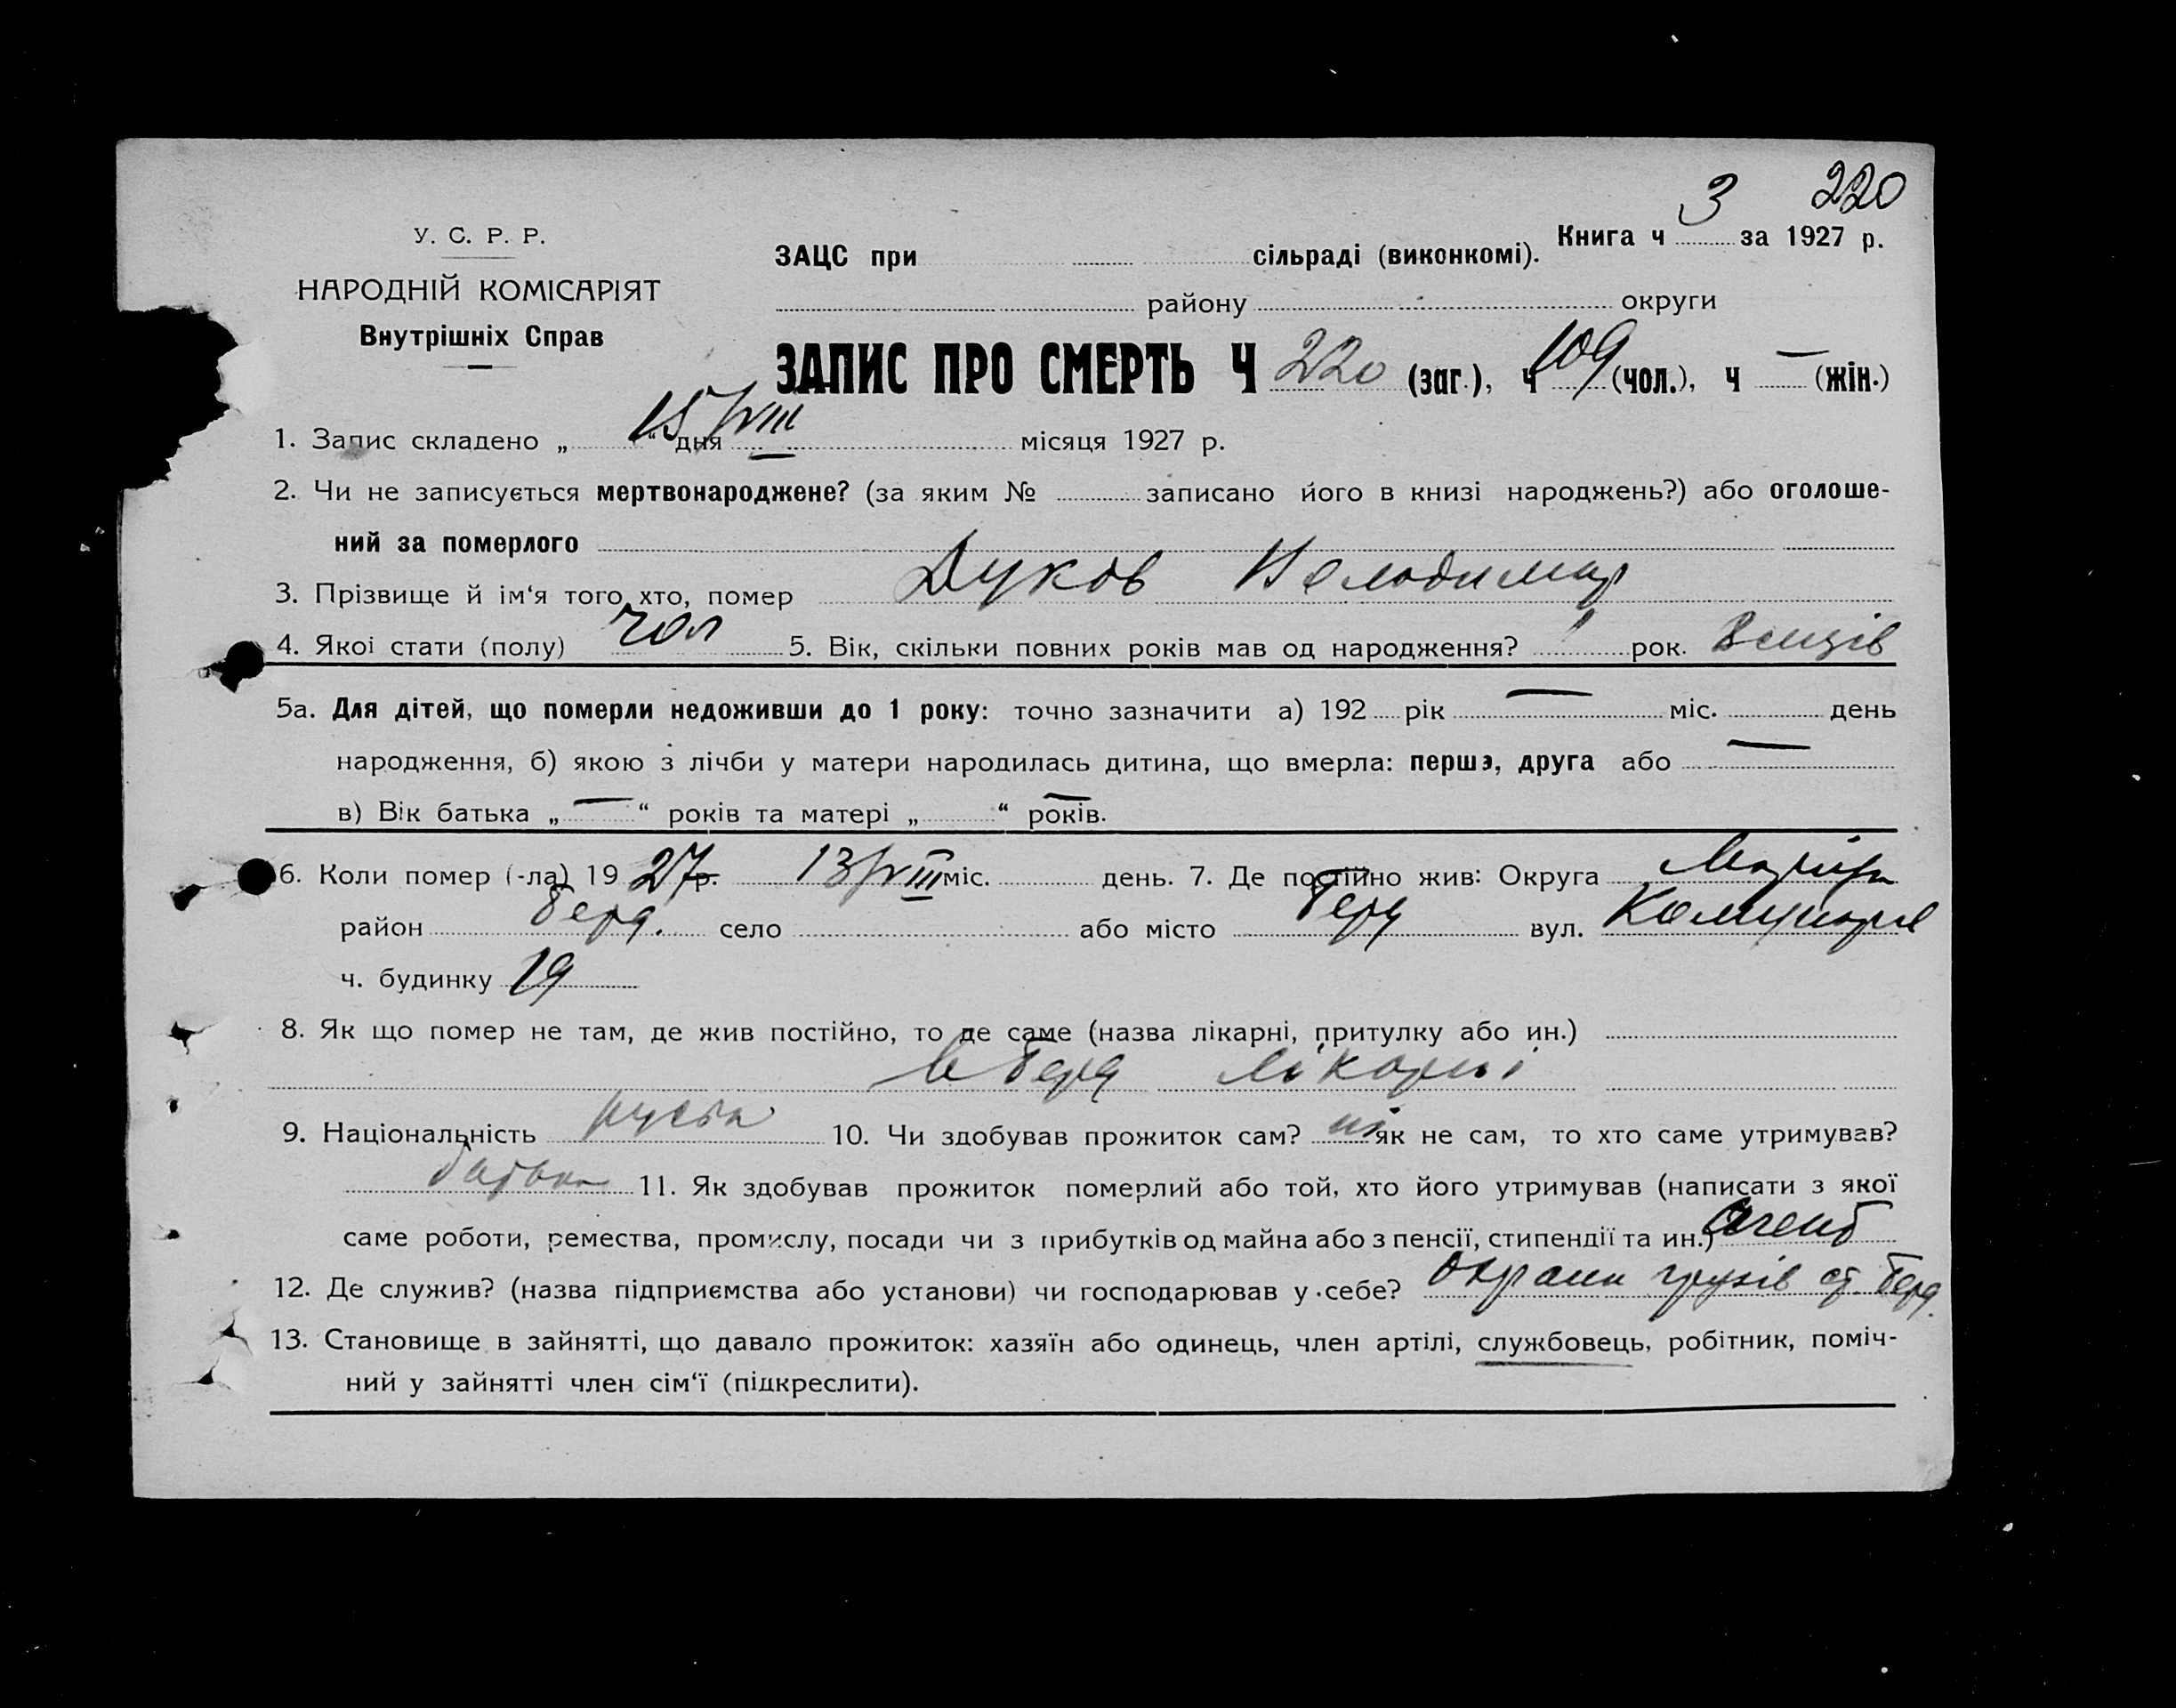 3 220
У. С. Р. Р.
Книга ч за 1927 р.
ЗАЦС при сільраді (виконкомі).
НАРОДНІЙ КОМІСАРІЯТ
району округи
Внутрішніх Справ
ЗАПИС ПРО СМЕРТЬ Ч 220 (заг.), ч 109 (чол.), ч — (жін.)
1. Запис складено „ 15 “ дня VIII місяця 1927 р.
2. Чи не записується мертвонароджене? (за яким № записано його в книзі народжень?) або оголоше-
ний за померлого
3. Прізвище й ім‘я того, хто, помер Дуков Володимир
4. Якоі стати (полу) чол 5. Вік, скільки повних років мав од народження? рок.
5а. Для дітей, що померли недоживши до 1 року: точно зазначити а) 192 рік — міс. день
народження, б) якою з лічби у матери народилась дитина, що вмерла: перша, друга або —
в) Вік батька „ — “ років та матері „ “ років.
6. Коли помер (-ла) 19 27 р. 13/VIII міс. день. 7. Де постійно жив: Округа
район Берд. село або місто Берд вул.
ч. будинку 19
8. Як що помер не там, де жив постійно, то де саме (назва лікарні, притулку або ин.)
в Берд лікарні
9. Національність 10. Чи здобував прожиток сам? ні як не сам, то хто саме утримував?
батько 11. Як здобував прожиток померлий або той, хто його утримував (написати з якої
саме роботи, ремества, промислу, посади чи з прибутків од майна або з пенсії, стипендії та ин.) Агент
12. Де служив? (назва підприємства або установи) чи господарював у себе? охрани грузів ст. Берд.
13. Становище в зайнятті, що давало прожиток: хазяїн або одинець, член артілі, службовець, робітник, поміч-
ний у зайнятті член сім‘ї (підкреслити).